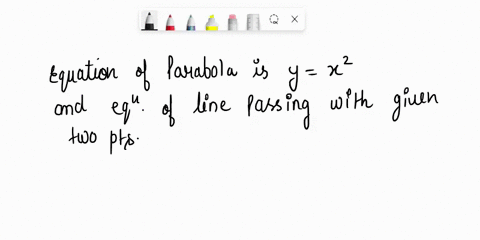 Equation of Parabola is y = x²
and eqⁿ. of line passing with given
two pts.